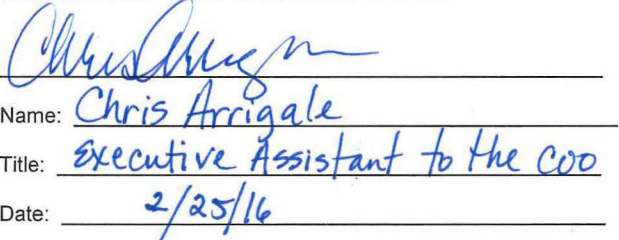 Chris Arrig
Name: Chris Arrigale
Title: Executive Assistant to the COO
Date: 2/25/16